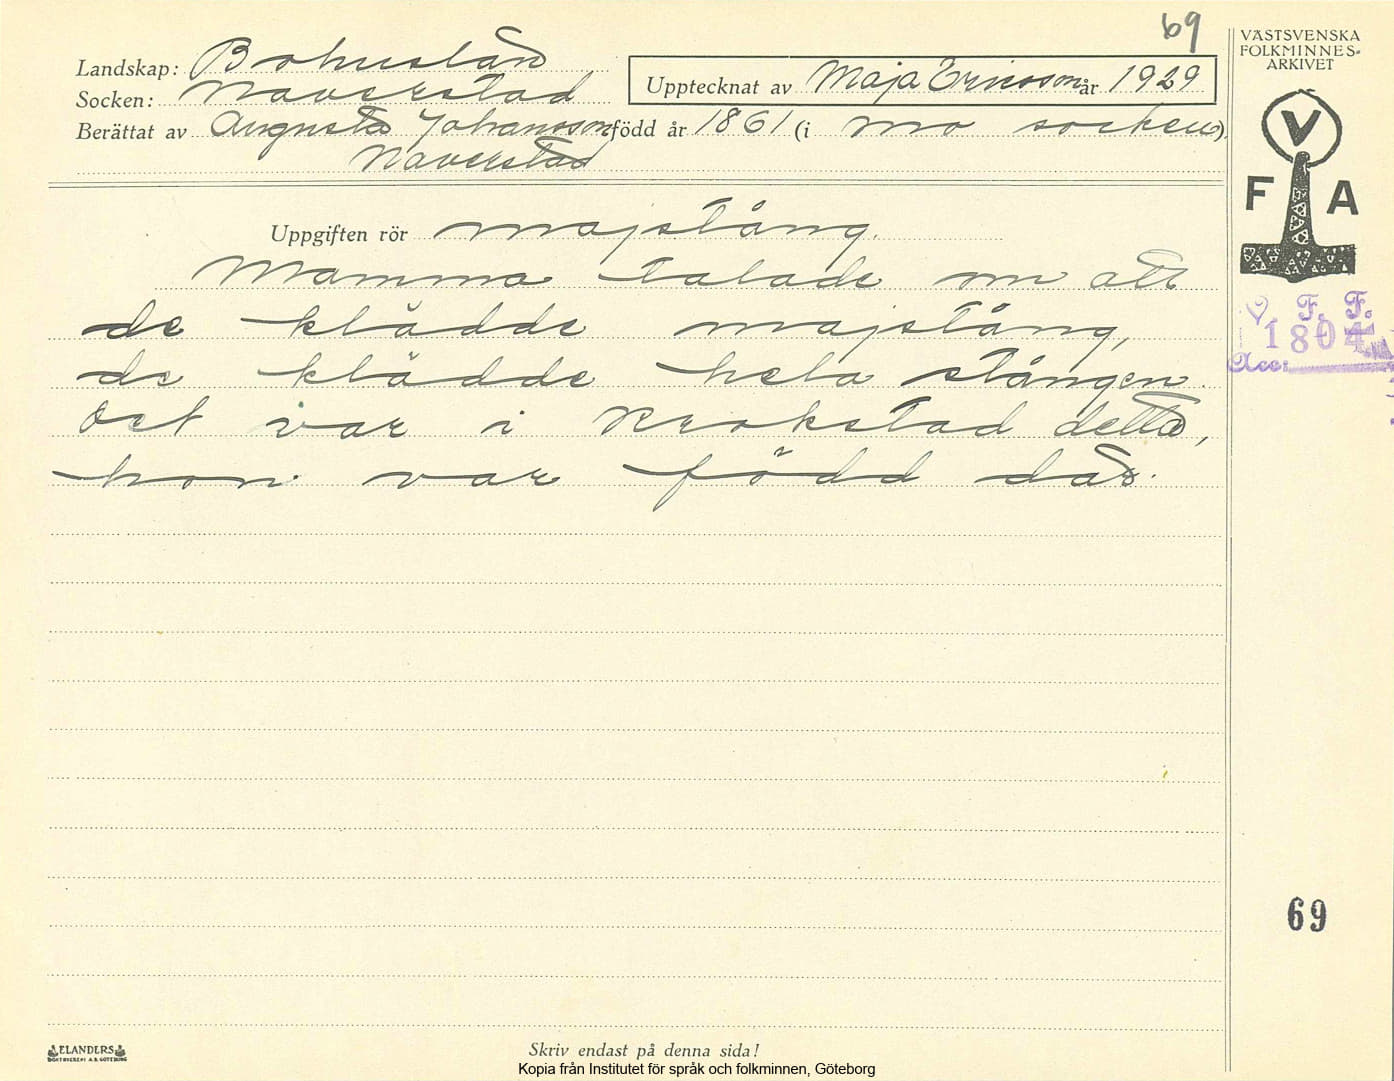 69
Landskap: Bohuslän
Socken: Naverstad
Upptecknat av Maja Ericsson år 1929
Berättat av Augusta Johansson född år 1861 (i Mo socken)
Naverstad
Uppgiften rör majstång.
Mamma talade om att
de klädde majstång,
de klädde hela stången.
Det var i Krokstad detta,
hon var född där.
VÄSTSVENSKA
FOLKMINNES-
ARKIVET
V
F A
V. F. F.
1804
Acc:
69
ELANDERS
BOKTRYCKERI A.B. GÖTEBORG
Skriv endast på denna sida!
Kopia från Institutet för språk och folkminnen, Göteborg